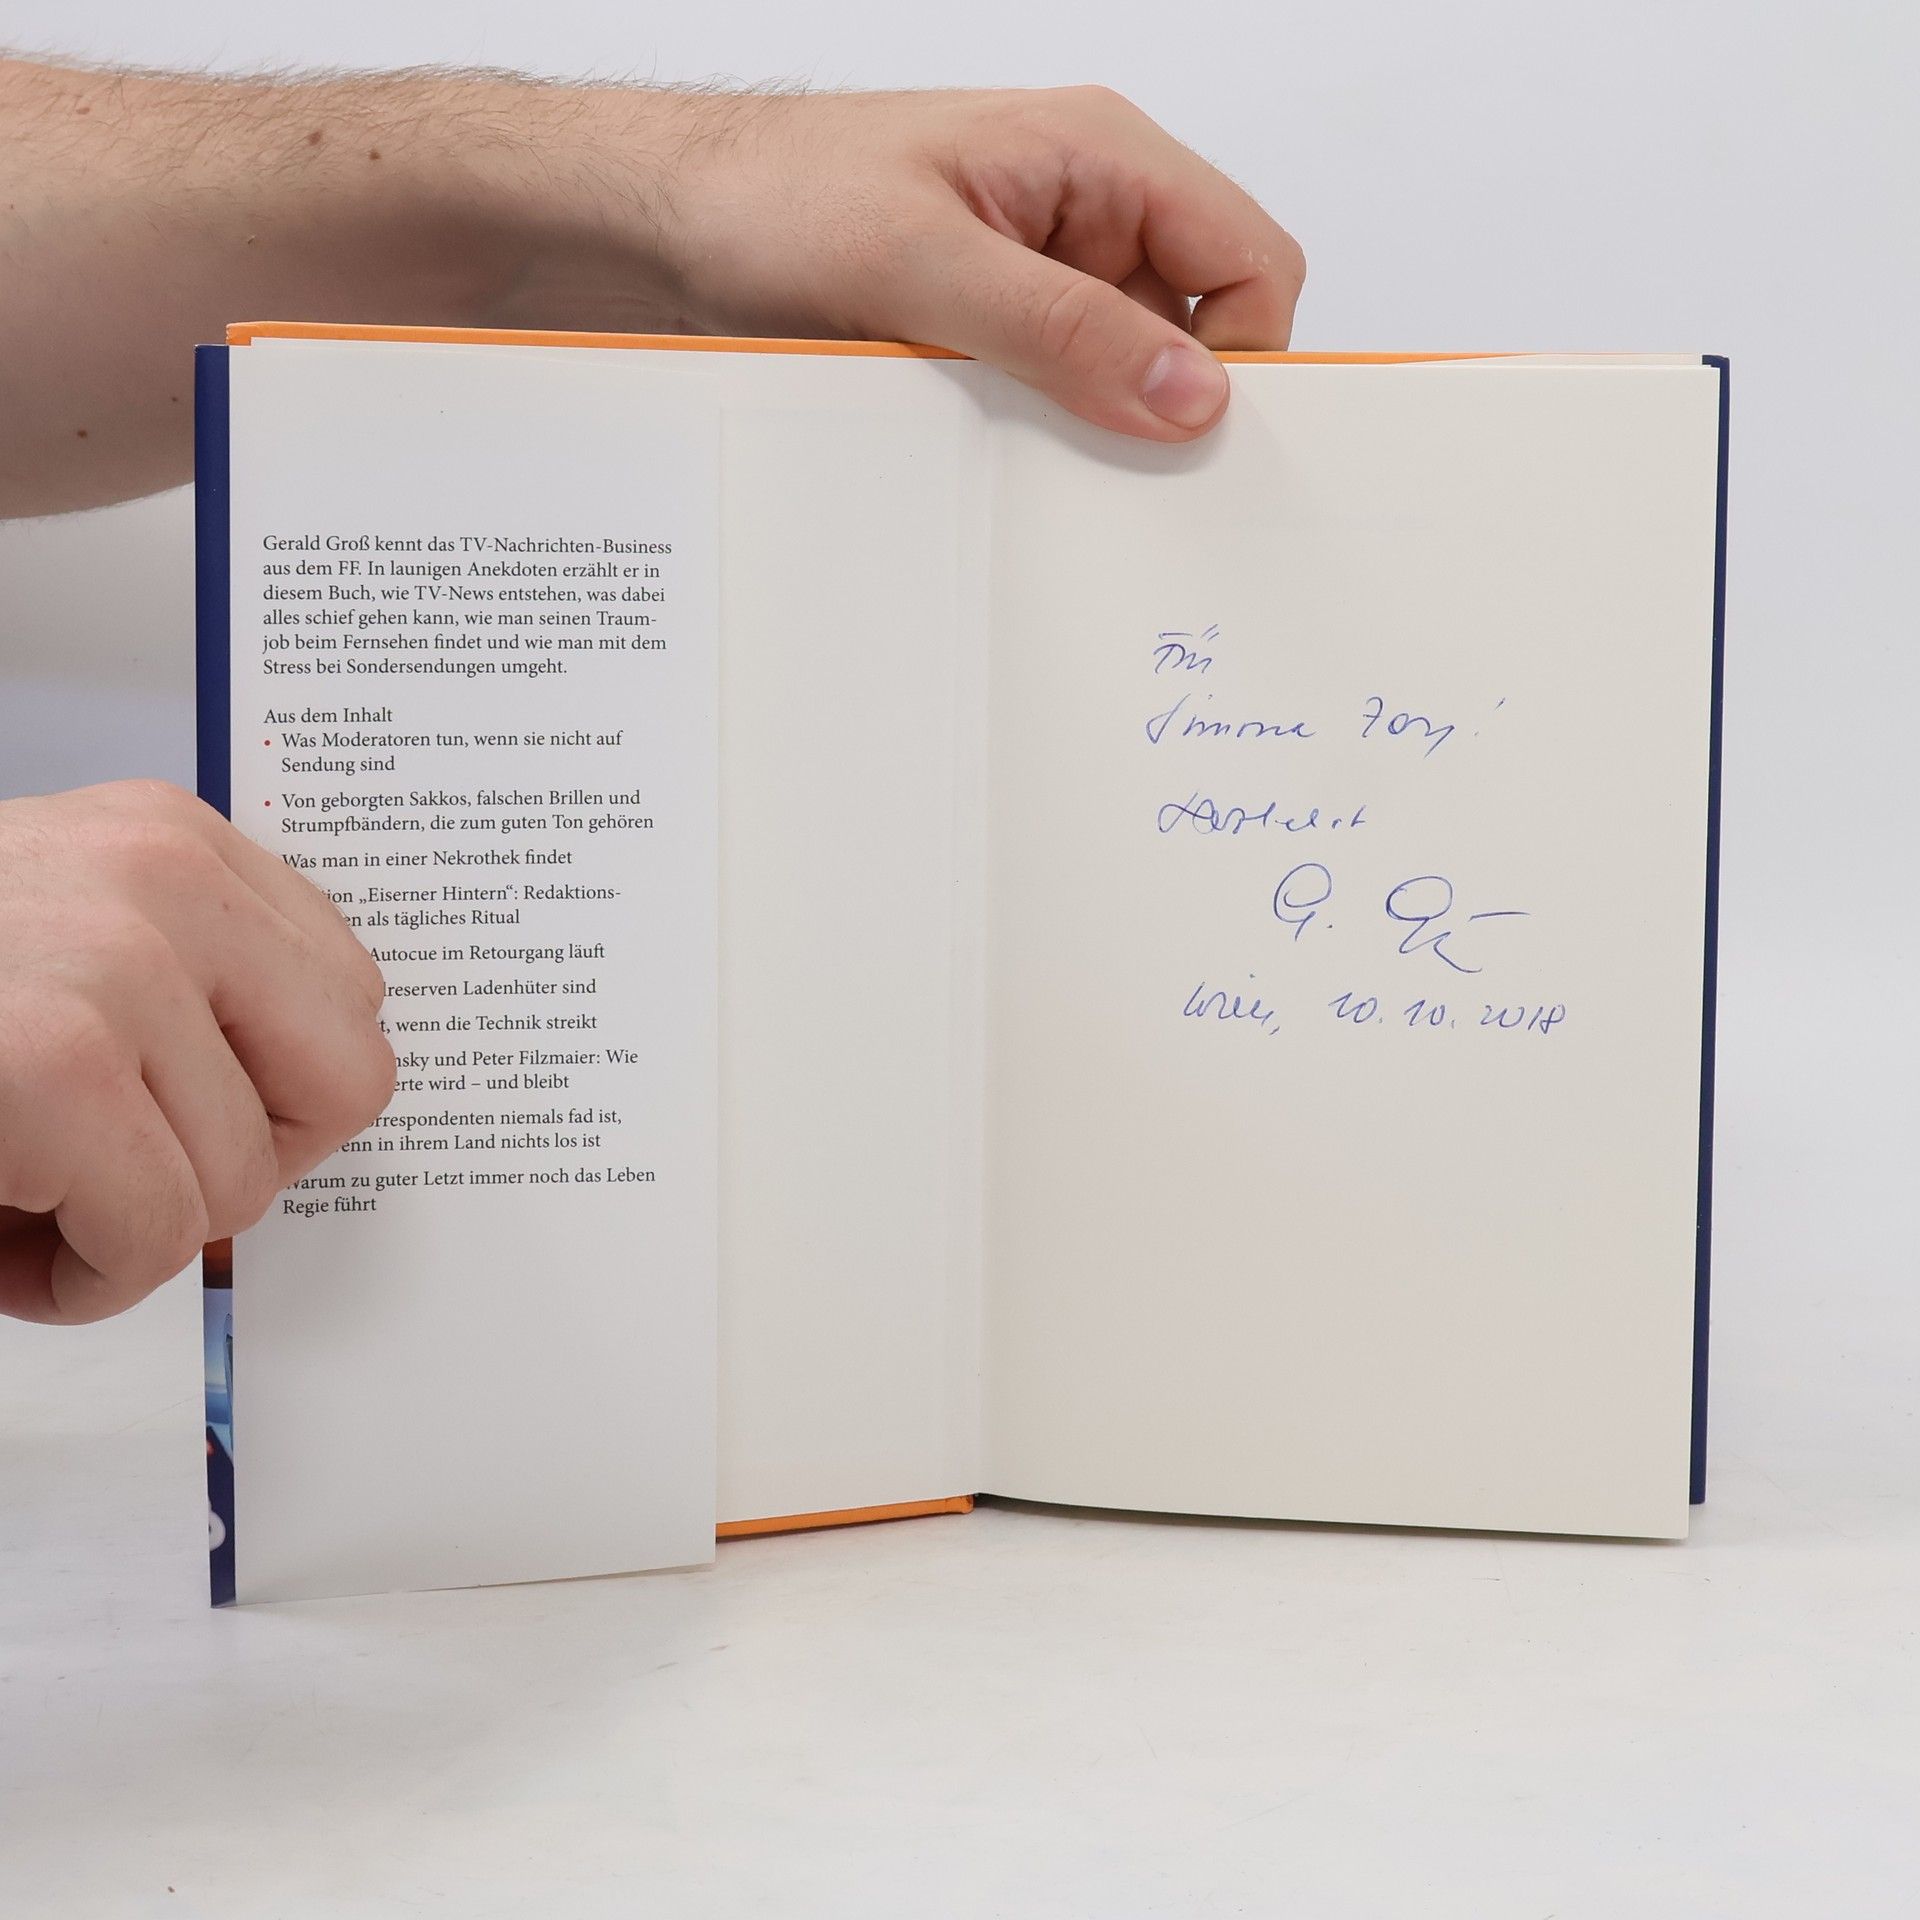 Gerald Groß kennt das TV-Nachrichten-Business
aus dem FF. In launigen Anekdoten erzählt er in
diesem Buch, wie TV-News entstehen, was dabei
alles schief gehen kann, wie man seinen Traum-
job beim Fernsehen findet und wie man mit dem
Stress bei Sondersendungen umgeht.
Aus dem Inhalt
• Was Moderatoren tun, wenn sie nicht auf
Sendung sind
• Von geborgten Sakkos, falschen Brillen und
Strumpfbändern, die zum guten Ton gehören
Was man in einer Nekrothek findet
„Eiserner Hintern“: Redaktions-
als tägliches Ritual
Autocue im Retourgang läuft
Ladenhüter sind
wenn die Technik streikt
und Peter Filzmaier: Wie
wird – und bleibt
niemals fad ist,
in ihrem Land nichts los ist
Warum zu guter Letzt immer noch das Leben
Regie führt
Für
Simona
G.
Wien, 10. 10. 2018